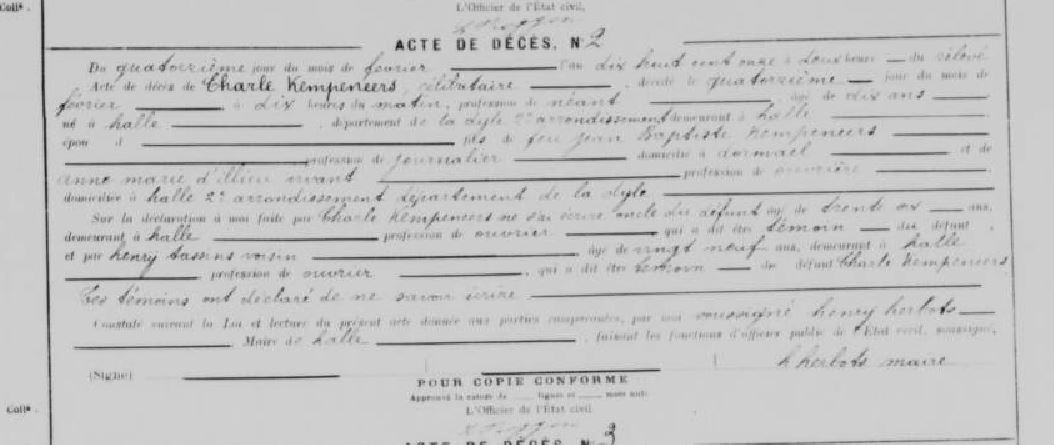 Coll⁽ᵉ⁾.
L'Officier de l'État civil,
ACTE DE DÉCÈS, N. 2
Du quatorzième jour du mois de fevrier l'an dix huit cent onze à deux heure du relevé
Acte de décès de Charle Kempeneers, célibitaire, décédé le quatorzième jour du mois de
fevrier à dix heures du matin, profession de néant âgé de dix ans
né à halle, département de la dyle 2e arrondissement demeurant à halle
époux d fils de feu jean Baptiste Kempeneers
profession de journalier domicilié à dormael et de
anne marie d'illieu vivant profession de ouvrière
domiciliée à halle 2e arrondissement département de la dyle
Sur la déclaration à moi faite par Charle Kempeneers ne sai écrire oncle du défunt âgé de trente six ans,
demeurant à halle profession de ouvrier qui a dit être témoin du défunt,
et par henry tassens voisin âgé de vingt neuf ans, demeurant à halle
profession de ouvrier, qui a dit être temoin du défunt Charle Kempeneers
Les témoins ont déclaré de ne savoir écrire
Constaté suivant la Loi et lecture du présent acte donnée aux parties comparantes, par moi soussigné henry herbots
Maire de halle, faisant les fonctions d'officier public de l'État civil, soussigné,
(Signé) h herbots maire
POUR COPIE CONFORME
Approuvé la rature de lignes et mots nuls.
Coll⁽ᵉ⁾.
L'Officier de l'État civil
ACTE DE DÉCÈS, N. 3